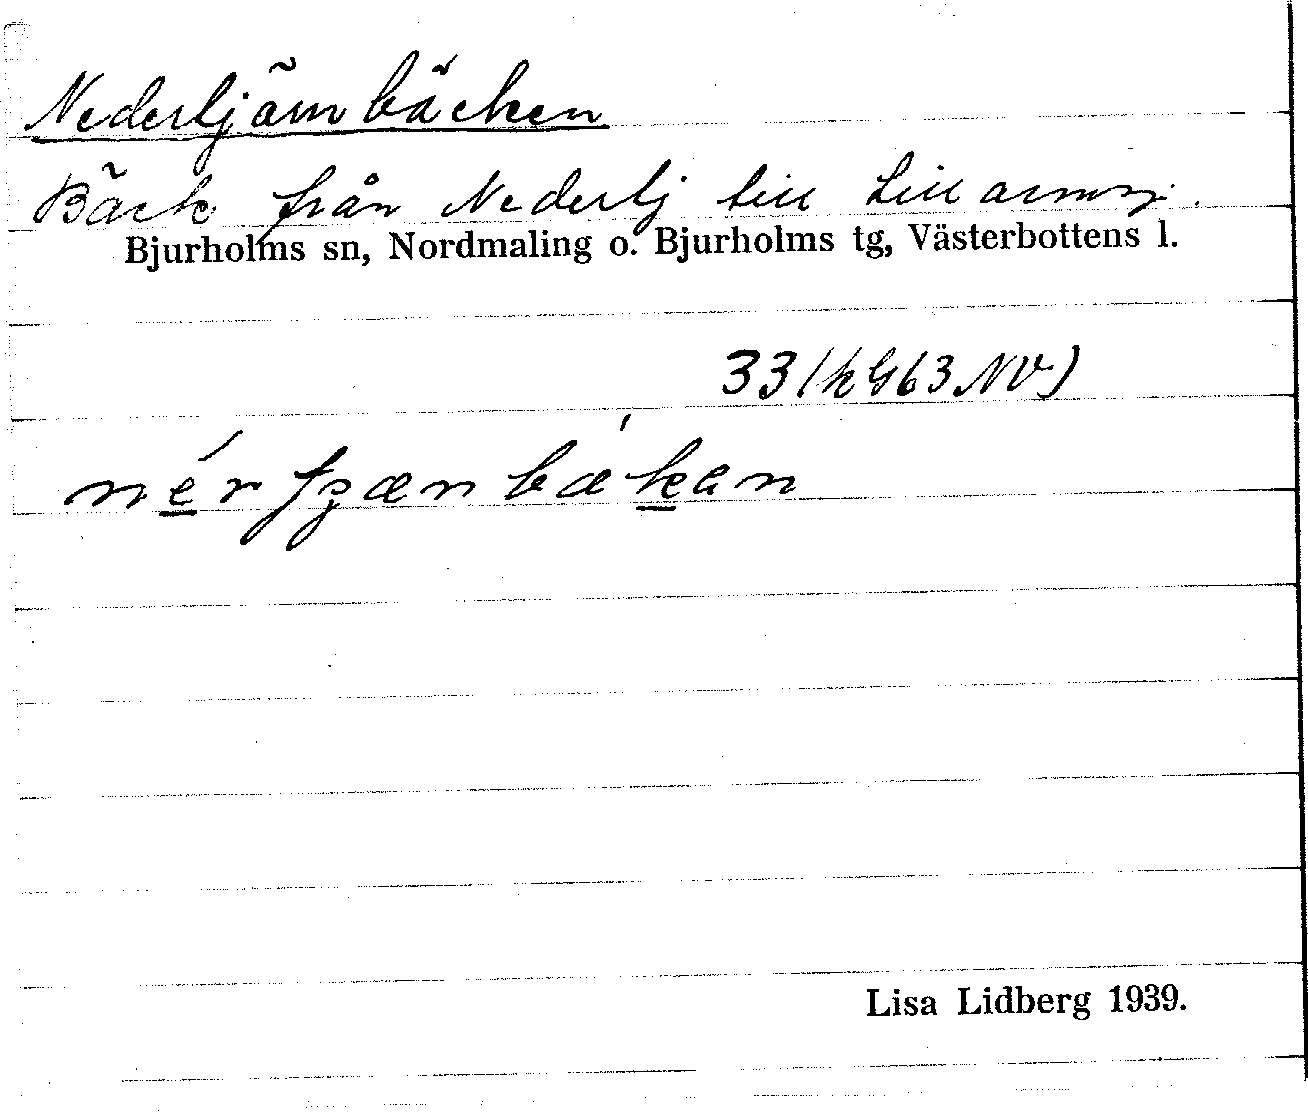 Nederljärnbäcken
Bäck från Nederlj till Lill
Bjurholms sn, Nordmaling o. Bjurholms tg, Västerbottens l.
33 (k G63 NV)
Lisa Lidberg 1939.